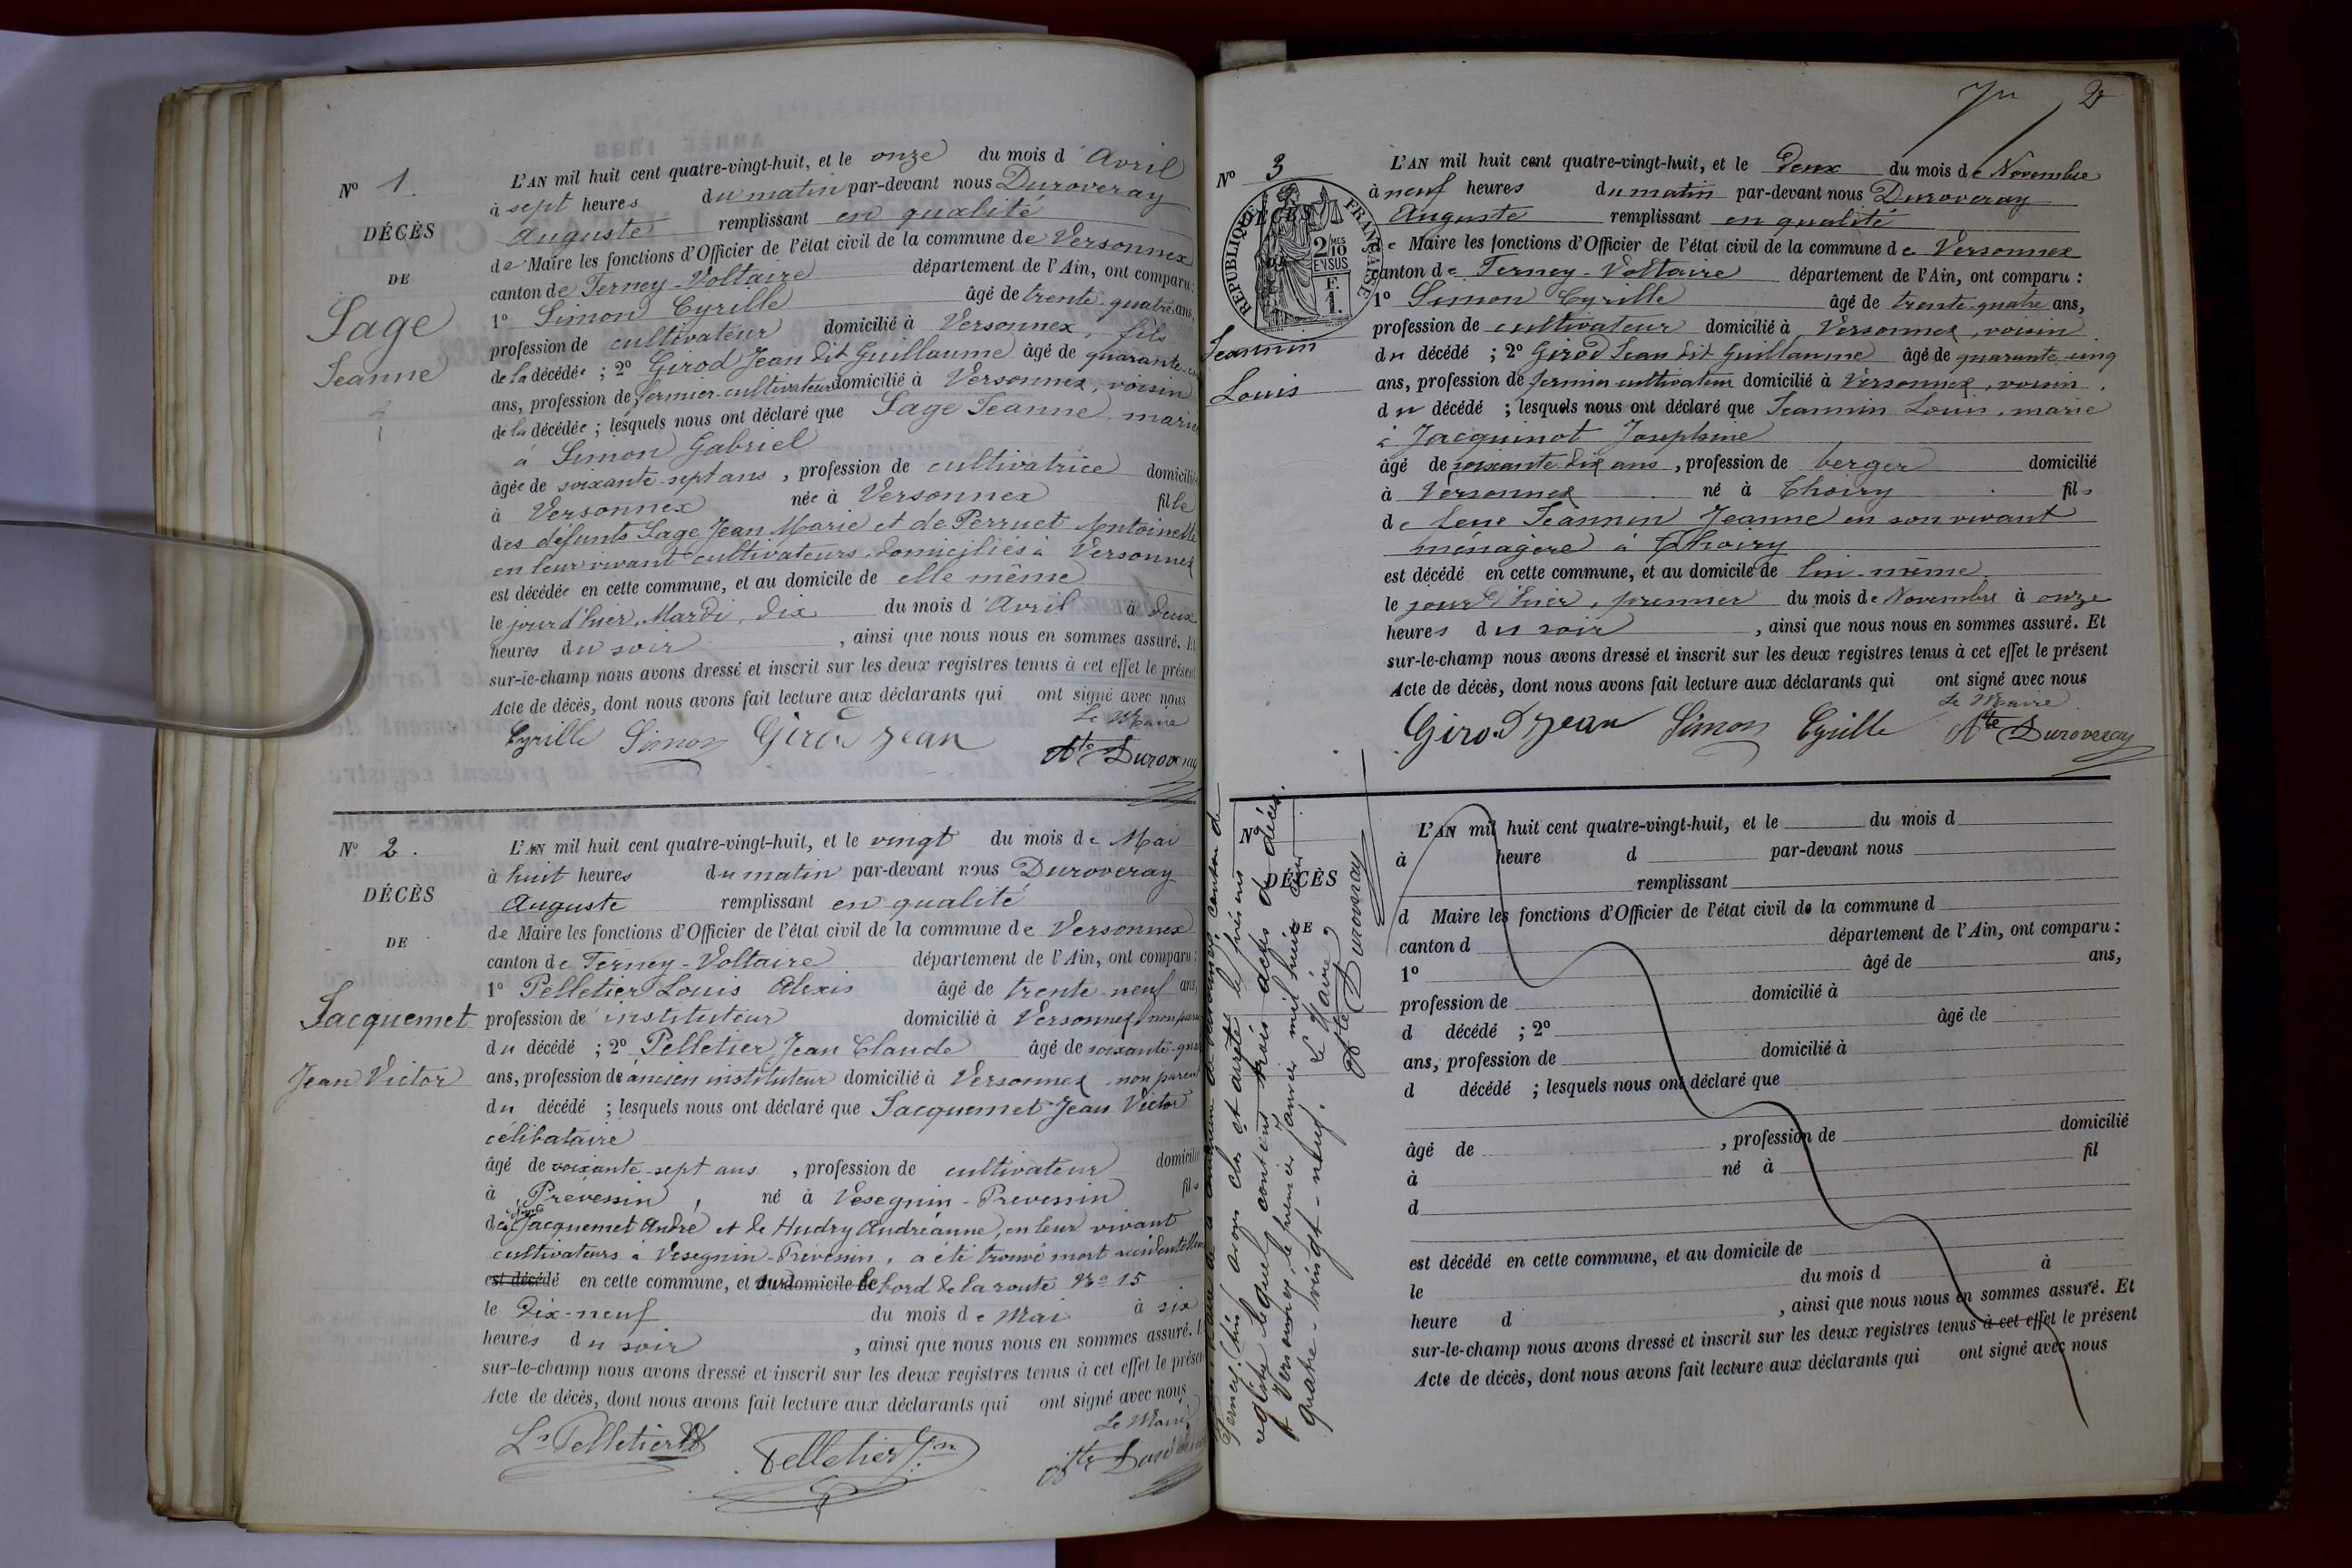 N° 1.
DÉCÈS
DE
Sage
Jeanne
L'AN mil huit cent quatre-vingt-huit, et le onze du mois d'Avril
à sept heures du matin par-devant nous Duroveray
Auguste remplissant en qualité
de Maire les fonctions d'Officier de l'état civil de la commune de Versonnex
canton de Ferney-Voltaire département de l'Ain, ont comparu:
1° Simon Cyrille âgé de trente-quatre ans,
profession de cultivateur domicilié à Versonnex, fils
de la décédée ; 2° Girod Jean dit Guillaume âgé de quarante-
ans, profession de fermier-cultivateur domicilié à Versonnex, voisin
de la décédée ; lesquels nous ont déclaré que Sage Jeanne, mariée
à Simon Gabriel
âgée de soixante-sept ans, profession de cultivatrice domiciliée
à Versonnex née à Versonnex fille
des défunts Sage Jean Marie et de Perruet Antoinette
en leur vivant cultivateurs domiciliés à Versonnex
est décédée en cette commune, et au domicile de elle même
le jour d'hier, Mardi, dix du mois d'Avril à deux
heures du soir, ainsi que nous nous en sommes assuré. Et
sur-le-champ nous avons dressé et inscrit sur les deux registres tenus à cet effet le présent
Acte de décès, dont nous avons fait lecture aux déclarants qui ont signé avec nous
Le Maire
Cyrille Simon Girod Jean Ate Duroveray
N° 2.
DÉCÈS
DE
Jacquemet
Jean Victor
L'AN mil huit cent quatre-vingt-huit, et le vingt du mois de Mai
à huit heures du matin par-devant nous Duroveray
Auguste remplissant en qualité
de Maire les fonctions d'Officier de l'état civil de la commune de Versonnex
canton de Ferney-Voltaire département de l'Ain, ont comparu:
1° Pelletier Louis Alexis âgé de trente-neuf ans,
profession de instituteur domicilié à Versonnex, non parent
du décédé ; 2° Pelletier Jean Claude âgé de soixante-
ans, profession de ancien instituteur domicilié à Versonnex non parent
du décédé ; lesquels nous ont déclaré que Jacquemet Jean Victor
célibataire
âgé de soixante-sept ans, profession de cultivateur domicilié
à Prévessin, né à Vesegnin-Prevessin fils
des Jacquemet André et de Hudry Andréanne, en leur vivant
cultivateurs à Vesegnin-Prévessin, a été trouvé mort accidentellement
est décédé en cette commune, et au domicile de bord de la route N° 15
le Dix-neuf du mois de Mai à six
heures du soir, ainsi que nous nous en sommes assuré. Et
sur-le-champ nous avons dressé et inscrit sur les deux registres tenus à cet effet le présent
Acte de décès, dont nous avons fait lecture aux déclarants qui ont signé avec nous
Le Maire
Ls Pelletier Pelletier Jn Ate Duroveray
2
N° 3
DÉCÈS
DE
RÉPUBLIQUE FRANÇAISE
2 MES
10
EN SUS
F.
1.
Jeannin
Louis
L'AN mil huit cent quatre-vingt-huit, et le Deux du mois de Novembre
à neuf heures du matin par-devant nous Duroveray
Auguste remplissant en qualité
de Maire les fonctions d'Officier de l'état civil de la commune de Versonnex
canton de Ferney-Voltaire département de l'Ain, ont comparu :
1° Simon Cyrille âgé de trente-quatre ans,
profession de cultivateur domicilié à Versonnex, voisin
du décédé ; 2° Girod Jean dit Guillaume âgé de quarante-cinq
ans, profession de fermier-cultivateur domicilié à Versonnex, voisin
du décédé ; lesquels nous ont déclaré que Jeannin Louis, marié
à Jacquinot Josephine
âgé de soixante-dix ans, profession de berger domicilié
à Versonnex né à Thoiry fils
de feue Jeannin Jeanne en son vivant
ménagère à Thoiry
est décédé en cette commune, et au domicile de lui-même
le jour d'hier, premier du mois de Novembre à onze
heures du soir, ainsi que nous nous en sommes assuré. Et
sur-le-champ nous avons dressé et inscrit sur les deux registres tenus à cet effet le présent
Acte de décès, dont nous avons fait lecture aux déclarants qui ont signé avec nous
Le Maire
Girod Jean Simon Cyrille Ate Duroveray
N°
DÉCÈS
DE
commune de Versonnex, canton de
Ferney, avons clos et arrêté le présent
registre lequel contient trois actes de décès.
A Versonnex, le premier Janvier mil huit cent
quatre-vingt-neuf.
Le Maire,
Ate Duroveray
L'AN mil huit cent quatre-vingt-huit, et le du mois d
à heure d par-devant nous
remplissant
d Maire les fonctions d'Officier de l'état civil de la commune d
canton d département de l'Ain, ont comparu :
1° âgé de ans,
profession de domicilié à
d décédé ; 2° âgé de
ans, profession de domicilié à
d décédé ; lesquels nous ont déclaré que
âgé de , profession de domicilié
à né à fil
d
est décédé en cette commune, et au domicile de
le du mois d à
heure d , ainsi que nous nous en sommes assuré. Et
sur-le-champ nous avons dressé et inscrit sur les deux registres tenus à cet effet le présent
Acte de décès, dont nous avons fait lecture aux déclarants qui ont signé avec nous